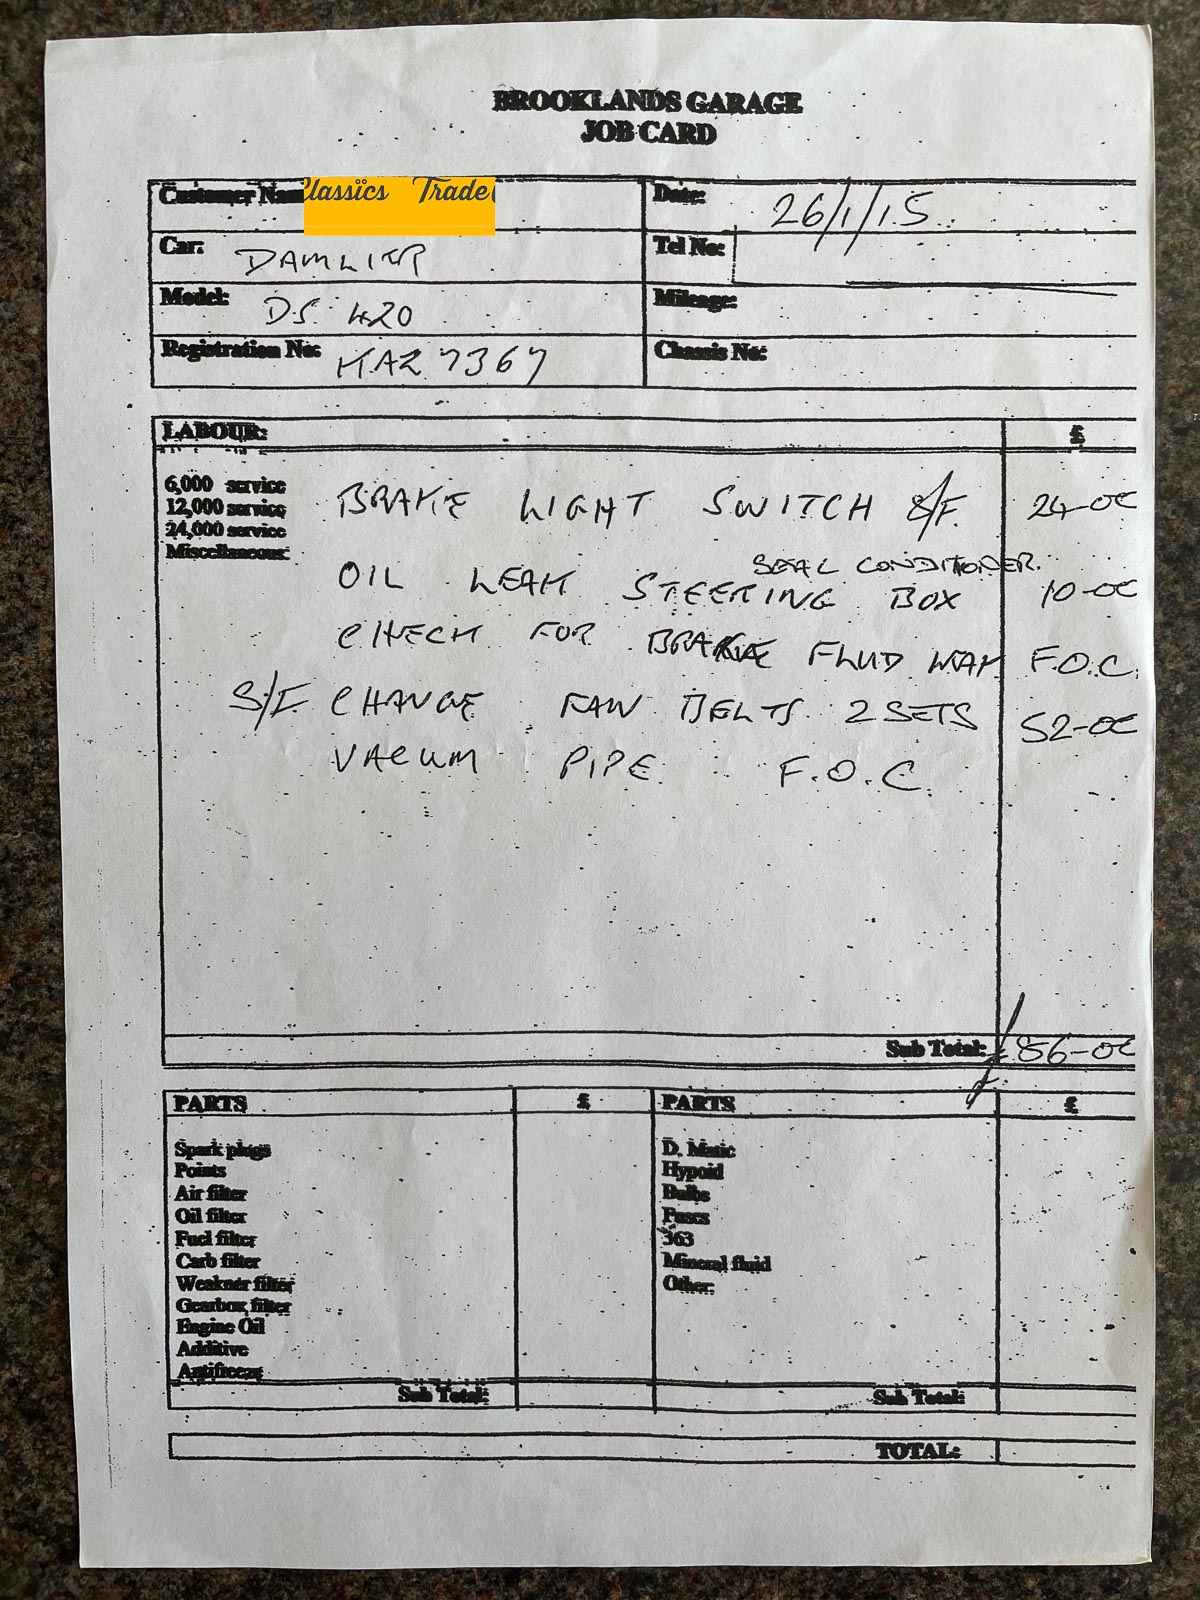 BROOKLANDS GARAGE
JOB CARD
Customer Nam
Classics Trade
Date: 26/1/15
Car: DAMLIER
Tel No:
Model: DS 420
Mileage:
Registration No: KAZ 7367
Chassis No:
LABOUR: £
6,000 service
12,000 service
24,000 service
Miscellaneous:
BRAKE LIGHT SWITCH S/F. 24-00
SEAL CONDITIONER.
OIL LEAK STEERING BOX 10-00
CHECK FOR BRAKE FLUID LEAK F.O.C.
S/F. CHANGE FAN BELTS 2 SETS 52-00
VACUM PIPE F.O.C.
Sub Total: £86-00
PARTS £ PARTS £
Spark plugs D. Matic
Points Hypoid
Air filter Bulbs
Oil filter Fuses
Fuel filter 363
Carb filter Mineral fluid
Weakner filter Other:
Gearbox filter
Engine Oil
Additive
Antifreeze
Sub Total: Sub Total:
TOTAL: